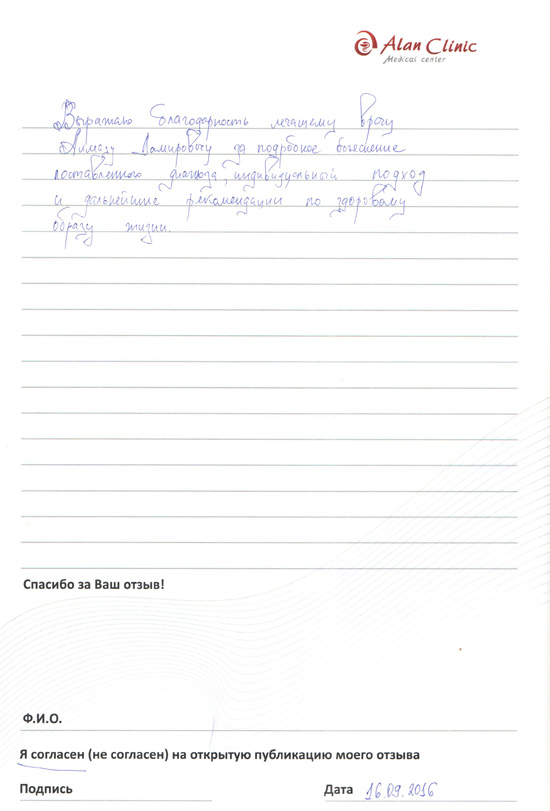 Alan Clinic
Medical center
Выражаю благодарность лечащему врачу
Алмазу Дамировичу за подробное обьяснение
поставленного диагноза, индивидуальный подход
и дальнейшие рекомендации по здоровому
образу жизни.
Спасибо за Ваш отзыв!
Ф.И.О.
Я согласен (не согласен) на открытую публикацию моего отзыва
Подпись
Дата 16.09.2016